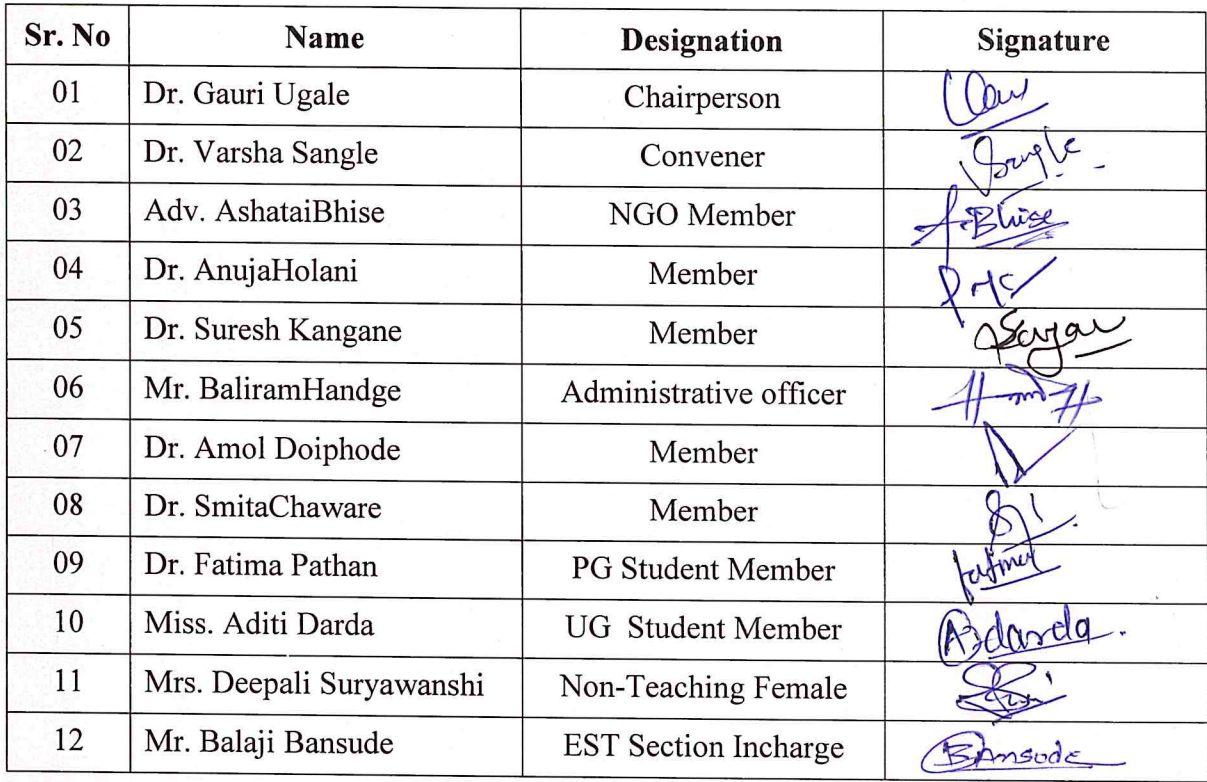 Sr. No Name Designation Signature
01 Dr. Gauri Ugale Chairperson
02 Dr. Varsha Sangle Convener Sangle
03 Adv. AshataiBhise NGO Member A.Bhise
04 Dr. AnujaHolani Member
05 Dr. Suresh Kangane Member
06 Mr. BaliramHandge Administrative officer
07 Dr. Amol Doiphode Member
08 Dr. SmitaChaware Member
09 Dr. Fatima Pathan PG Student Member Fatima
10 Miss. Aditi Darda UG Student Member A darda.
11 Mrs. Deepali Suryawanshi Non-Teaching Female
12 Mr. Balaji Bansude EST Section Incharge Bansude